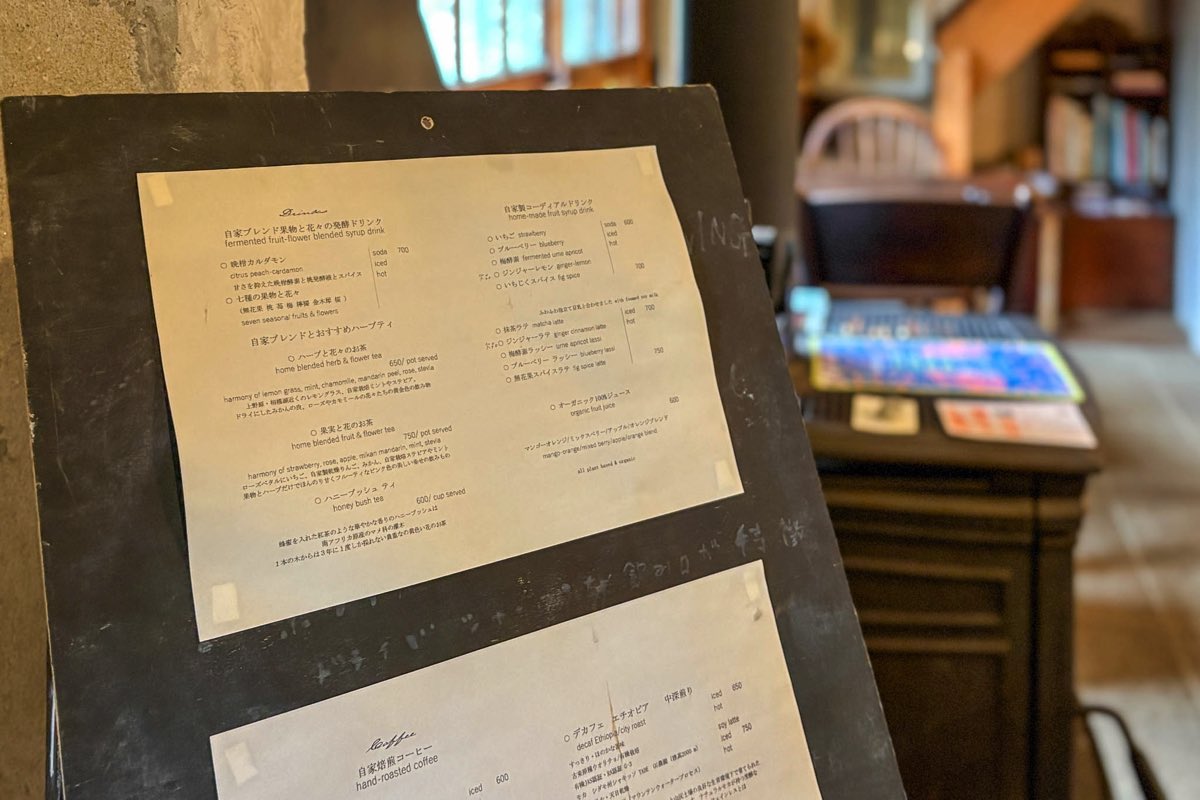 Drinks
自家ブレンド果物と花々の発酵ドリンク
fermented fruit-flower blended syrup drink
○ 映桲カルダモン
citrus peach-cardamon
甘さを抑えた映桲酵素と桃発酵液とスパイス
soda 700
iced
hot
○ 七種の果物と花々
（無花果 桃 苺 梅 檸檬 金木犀 桜）
seven seasonal fruits & flowers
自家ブレンドとおすすめハーブティ
○ ハーブと花々のお茶
home blended herb & flower tea
650/ pot served
harmony of lemon grass, mint, chamomile, mandarin peel, rose, stevia
上野原・相模湖近くのレモングラス、自家栽培ミントやステビア、
ドライにしたみかんの皮、ローズやカモミールの花々たちの黄金色の飲み物
○ 果実と花のお茶
home blended fruit & flower tea
750/ pot served
harmony of strawberry, rose, apple, mikan mandarin, mint, stevia
ローズペタルにいちご、自家製乾燥りんご、みかん、自家栽培ステビアやミント
果物とハーブだけでほんのり甘くフルーティなピンク色の美しい幸せの飲みもの
○ ハニーブッシュ ティ
honey bush tea
600/ cup served
蜂蜜を入れた紅茶のような華やかな香りのハニーブッシュは
南アフリカ原産のマメ科の灌木
1本の木からは3年に1度しか採れない貴重なの黄色い花のお茶
自家製コーディアルドリンク
home-made fruit syrup drink
○ いちご strawberry
○ ブルーベリー blueberry
○ 梅酵素 fermented ume apricot
○ ジンジャーレモン ginger-lemon
○ いちじくスパイス fig spice
soda 600
iced
hot
700
ふわふわ泡立て豆乳と合わせました with foamed soy milk
○ 抹茶ラテ matcha latte
○ ジンジャーラテ ginger cinnamon latte
○ 梅酵素ラッシー ume apricot lassi
○ ブルーベリー ラッシー blueberry lassi
○ 無花果スパイスラテ fig spice latte
iced 700
hot
750
○ オーガニック100%ジュース
organic fruit juice
600
マンゴーオレンジ/ミックスベリー/アップル/オレンジブレンド
mango-orange/mixed berry/apple/orange blend
all plant based & organic
Coffee
自家焙煎コーヒー
hand-roasted coffee
iced 600
○ デカフェ エチオピア 中深煎り
decaf Ethiopia/city roast
iced 650
hot
soy latte
iced 750
hot
すっきり・ほのかな甘味